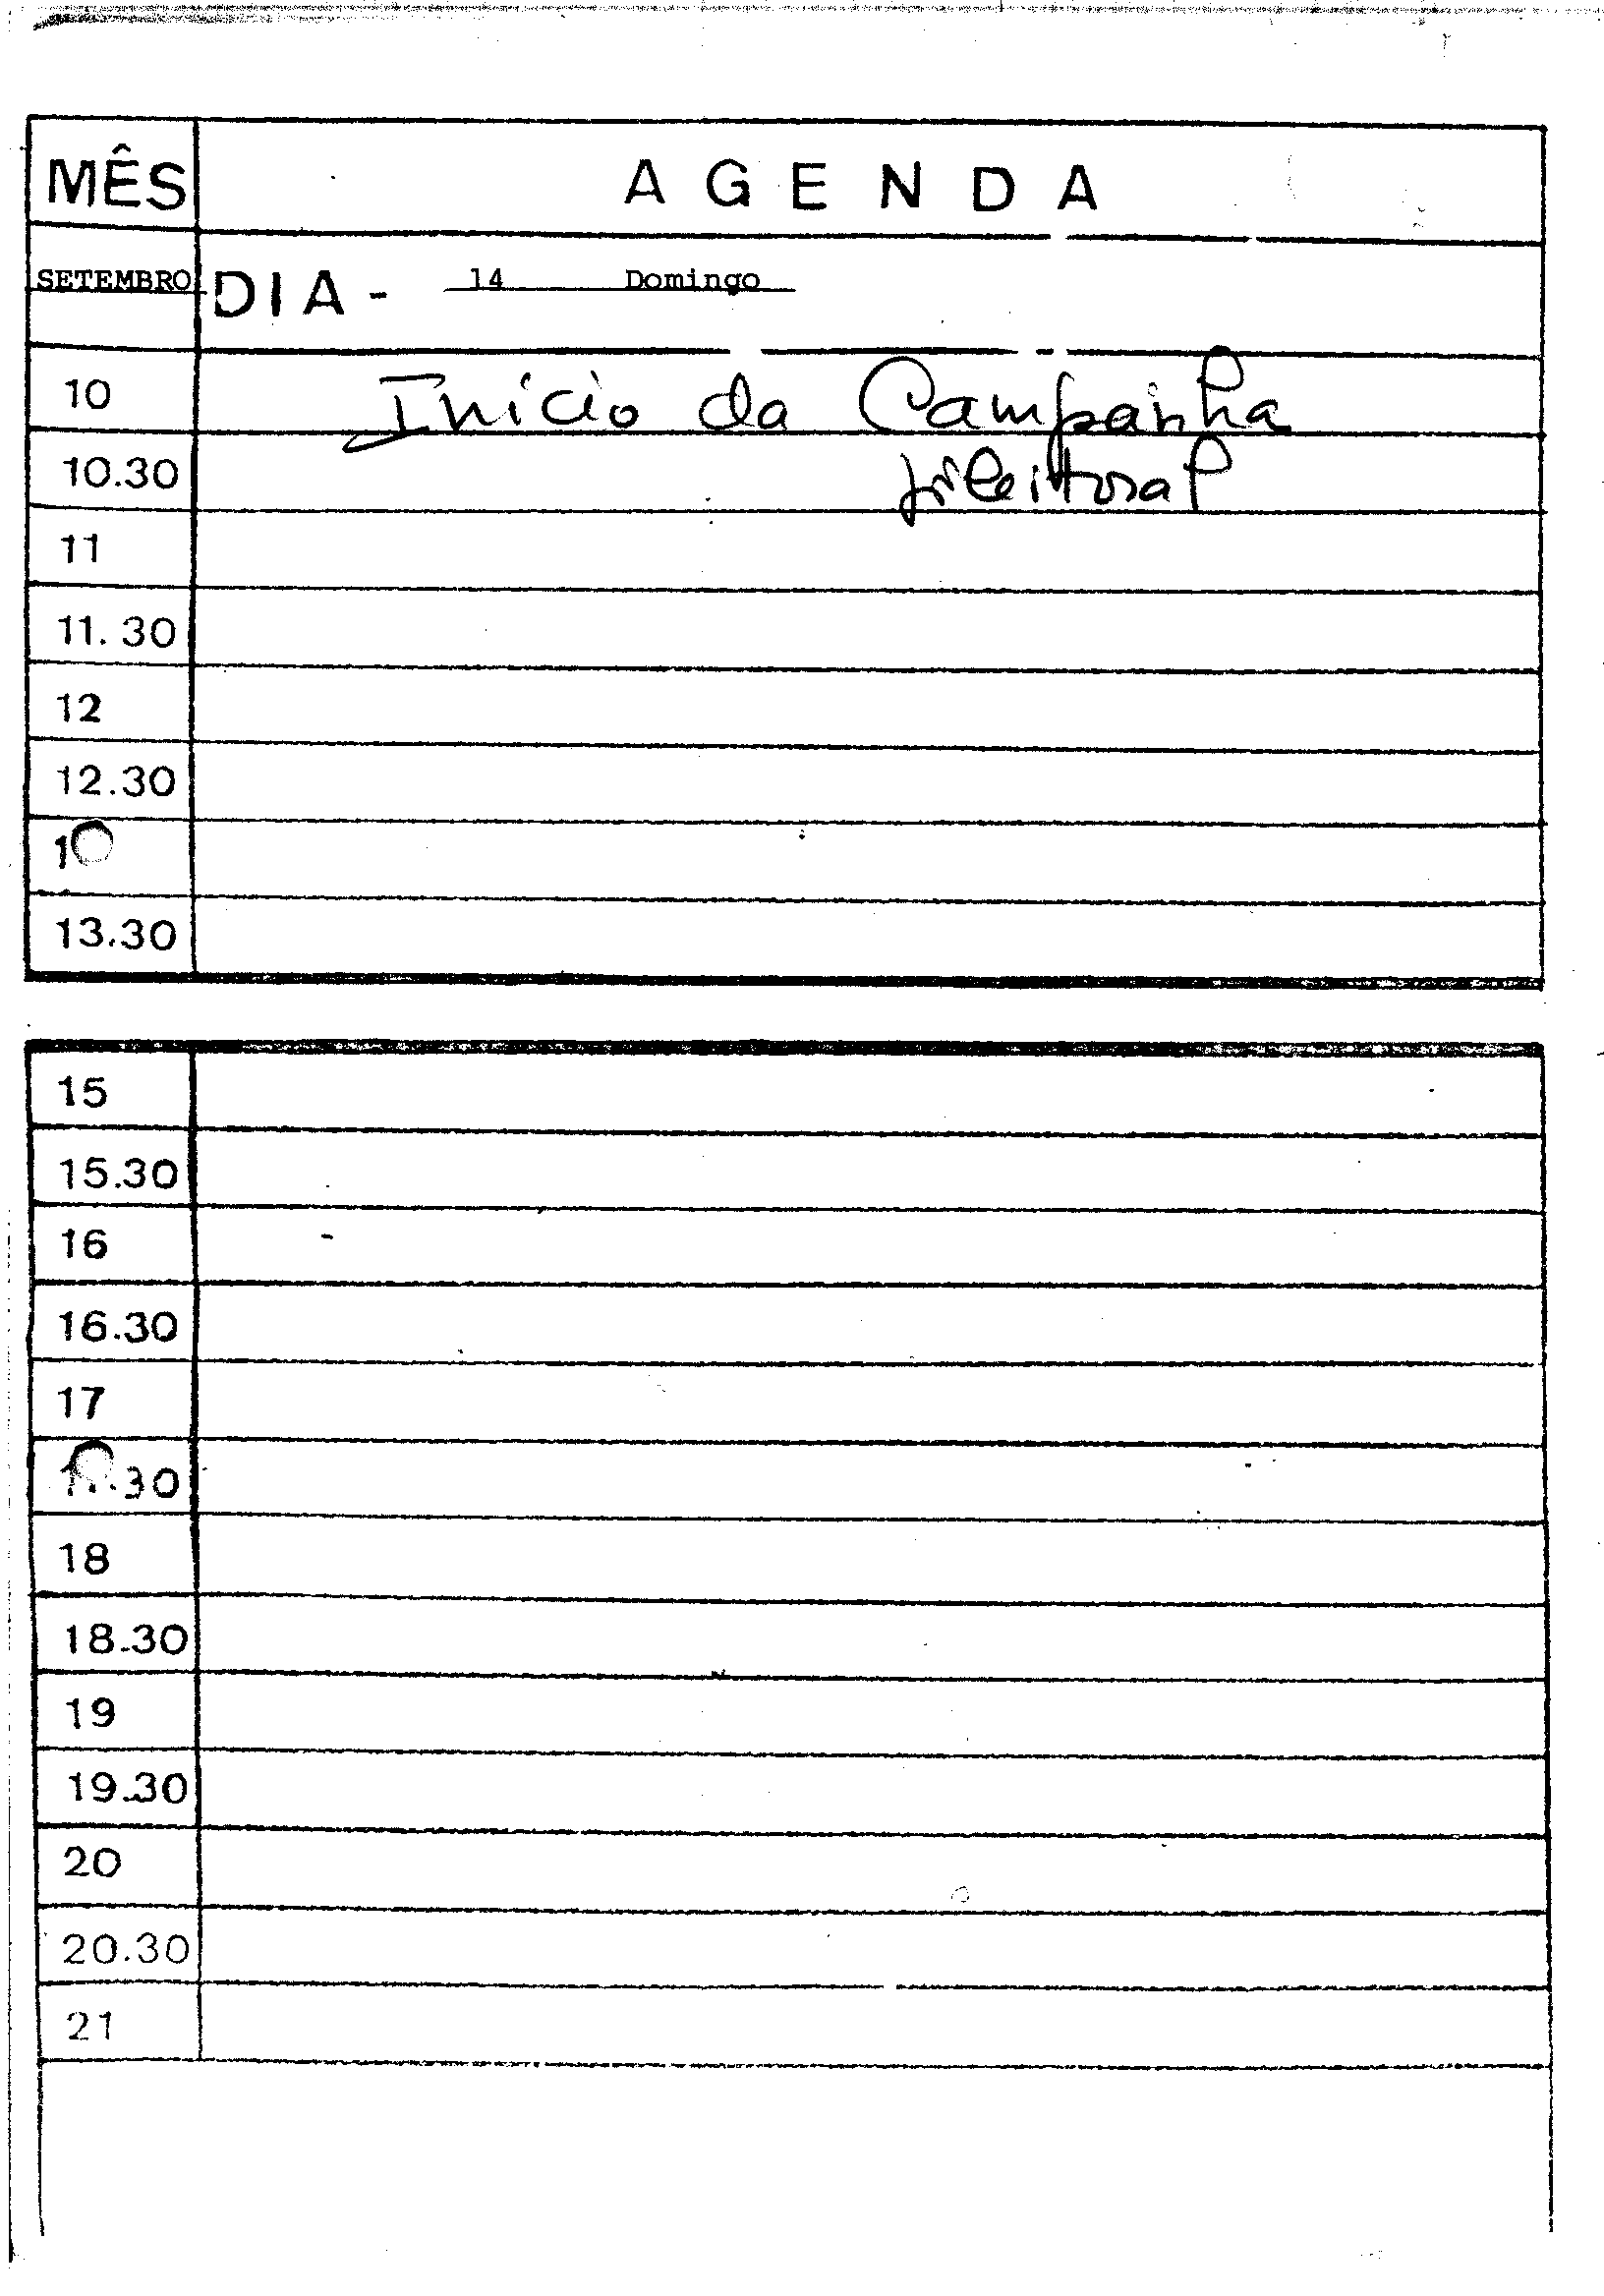 MÊS
A G E N D A
SETEMBRO
DIA - 14 Domingo
10 Início da Campanha
10.30
11
11.30
12
12.30
1
13.30
15
15.30
16
16.30
17
.30
18
18.30
19
19.30
20
20.30
21